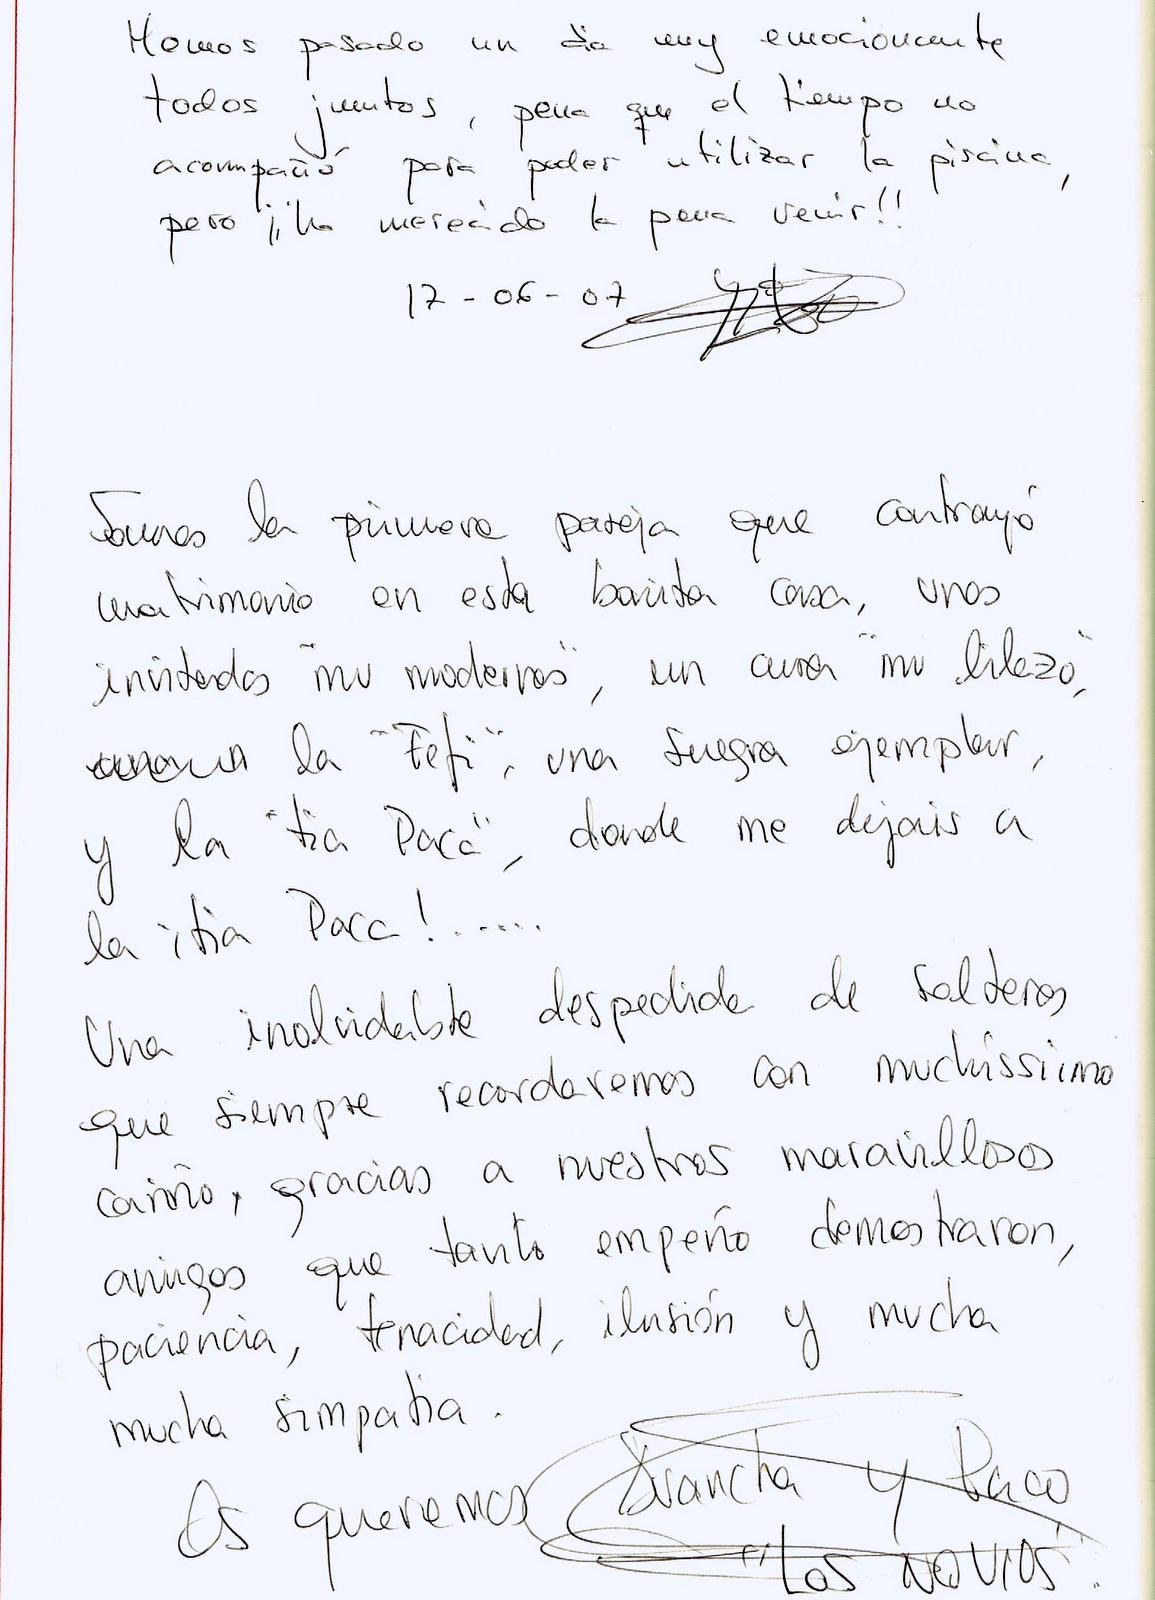 Hemos pasado un día muy emocionante
todos juntos, pena que el tiempo no
acompañó para poder utilizar la piscina,
pero ¡¡ha merecido la pena venir!!
17-06-07
Somos la primera pareja que contrayó
matrimonio en esta bonita casa, unos
invitados "mu modernos", un cura "mu
la "Fefi", una suegra ejemplar,
y la "tia Paca", donde me dejais a
la ¡tia Paca!......
Una inolvidable despedida de solteros
que siempre recordaremos con muchíssimo
cariño, gracias a nuestros maravillosos
amigos que tanto empeño demostraron,
paciencia, tenacidad, ilusión y mucha
mucha simpatia.
Os queremos
Arancha y Paco
"Los NOVIOS".